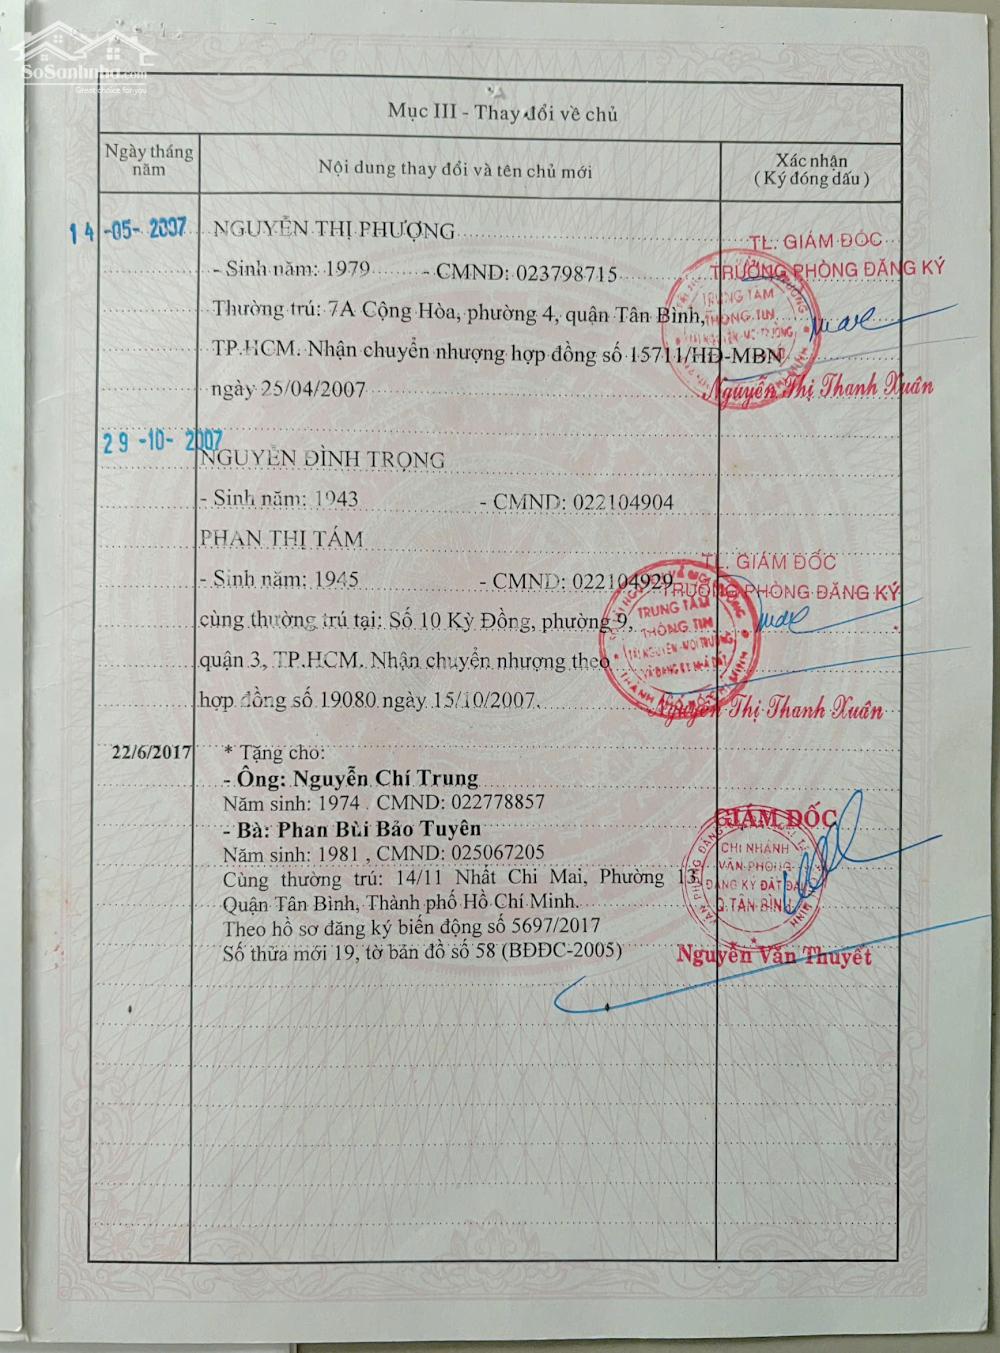 SoSanhnha.com
Great choice for you
Mục III - Thay đổi về chủ
Ngày tháng năm
Nội dung thay đổi và tên chủ mới
Xác nhận
( Ký đóng dấu )
14 -05- 2007
NGUYỄN THỊ PHƯỢNG
- Sinh năm: 1979 - CMND: 023798715
Thường trú: 7A Cộng Hòa, phường 4, quận Tân Bình,
TP.HCM. Nhận chuyển nhượng hợp đồng số 15711/HĐ-MBN
ngày 25/04/2007
TL. GIÁM ĐỐC
TRƯỞNG PHÒNG ĐĂNG KÝ
TRUNG TÂM
THÔNG TIN
Nguyễn Thị Thanh Xuân
29 -10- 2007
NGUYỄN ĐÌNH TRỌNG
- Sinh năm: 1943 - CMND: 022104904
PHAN THỊ TÁM
- Sinh năm: 1945 - CMND: 022104929
cùng thường trú tại: Số 10 Kỳ Đồng, phường 9,
quận 3, TP.HCM. Nhận chuyển nhượng theo
hợp đồng số 19080 ngày 15/10/2007.
TL. GIÁM ĐỐC
TRƯỞNG PHÒNG ĐĂNG KÝ
TRUNG TÂM
THÔNG TIN
TÀI NGUYÊN-MÔI TRƯỜNG
VÀ ĐĂNG KÝ NHÀ ĐẤT
Nguyễn Thị Thanh Xuân
22/6/2017
* Tặng cho:
- Ông: Nguyễn Chí Trung
Năm sinh: 1974 . CMND: 022778857
- Bà: Phan Bùi Bảo Tuyên
Năm sinh: 1981 , CMND: 025067205
Cùng thường trú: 14/11 Nhất Chi Mai, Phường 13,
Quận Tân Bình, Thành phố Hồ Chí Minh.
Theo hồ sơ đăng ký biến động số 5697/2017
Số thửa mới 19, tờ bản đồ số 58 (BĐĐC-2005)
GIÁM ĐỐC
CHI NHÁNH
VĂN PHÒNG
ĐĂNG KÝ ĐẤT ĐAI
Q.TÂN BÌNH
Nguyễn Văn Thuyết